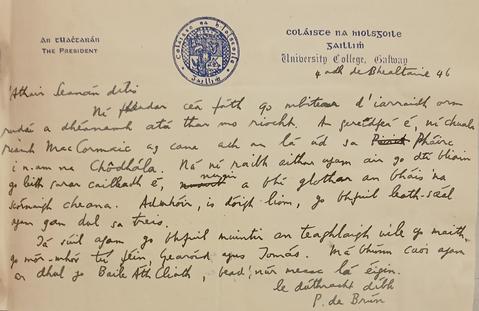 An tUachtarán
The President
Coláiste na hIolsgoile
Gaillimh
Coláiste na hIolsgoile
Gaillimh
University College, Galway
4adh de Bhealtaine 46
Athair Seanán dílis
Ní fheadar cén fáth go mbítear d'iarraidh orm
rudaí a dhéanamh atá thar mo riocht. An gcreidfeá é, ní chuala
riamh MacCormaic ag cane ach an lá úd sa Pháirc
i n-am na Chomhdhála. Ná ní raibh aithne agam air go dtí bliain
go leith sarar cailleadh é, a bhí glothar an bháis 'na
scórnaigh cheana. Admhóir, is dóigh liom, go bhfuil leath-scéal
agam gan dul sa treis.
Tá súil agam go bhfuil muintir an teaghlaigh uile go maith,
go mór-mhór tú féin, Gearóid agus Tomás. Má bhíonn caoi agam
ar dhul go Baile Átha Cliath, bead 'nár measc lá éigin.
le dúthracht dhíbh
P. de Brún